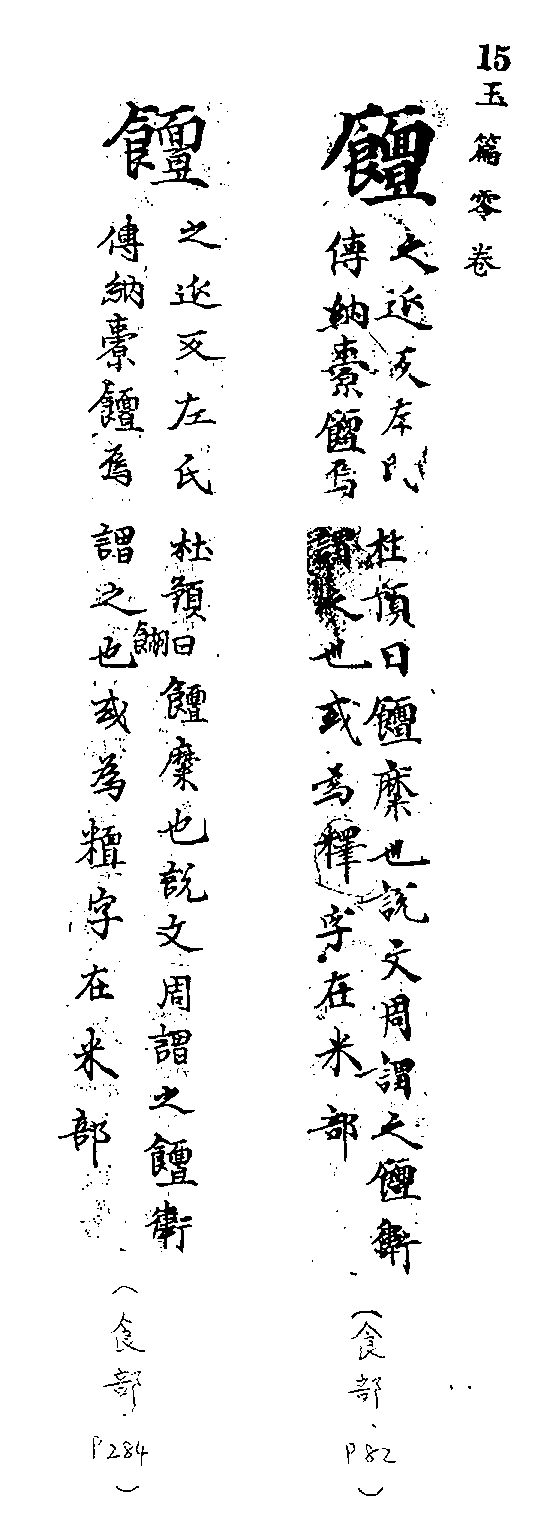 15玉篇零卷
饘
之延反左氏
傳納橐饘焉
杜預曰饘糜也說文周謂之饘衛
謂之也或為釋字在米部
(食部.P82)
饘
之延反左氏
傳納橐饘焉
杜預曰饘糜也說文周謂之饘衛
謂之餬也或為糆字在米部
(食部.P284)